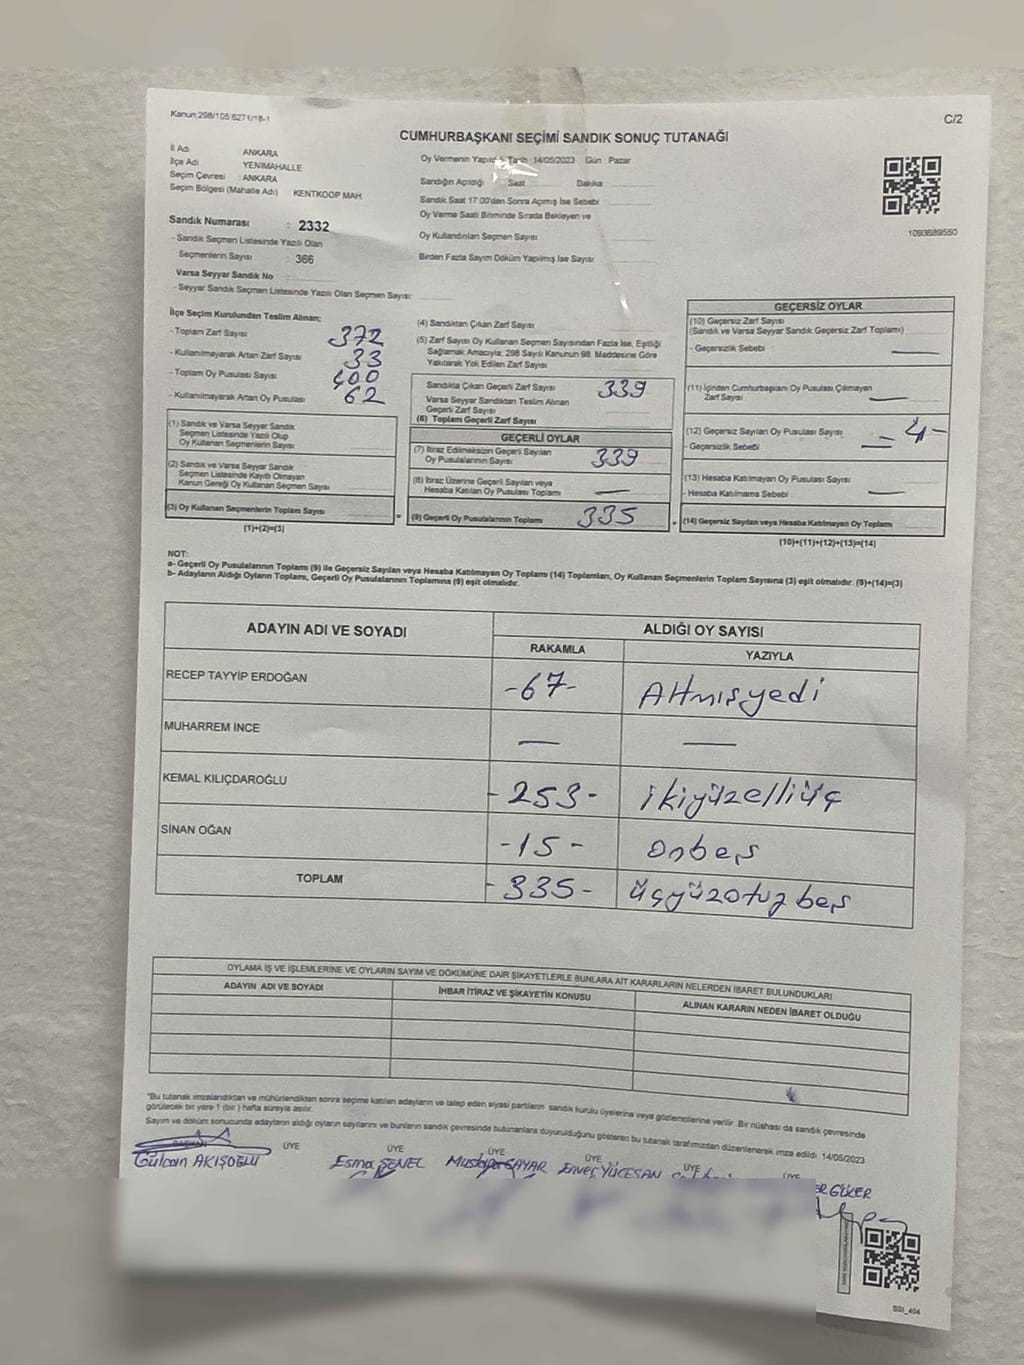 Kanun;298/105 6271/18-1
C/2
CUMHURBAŞKANI SEÇİMİ SANDIK SONUÇ TUTANAĞI
İl Adı ANKARA
İlçe Adı YENİMAHALLE
Seçim Çevresi : ANKARA
Seçim Bölgesi (Mahalle Adı) KENTKOOP MAH.
Sandık Numarası : 2332
- Sandık Seçmen Listesinde Yazılı Olan
Seçmenlerin Sayısı : 366
Varsa Seyyar Sandık No
- Seyyar Sandık Seçmen Listesinde Yazılı Olan Seçmen Sayısı:
Oy Vermenin Yapıldığı Tarih 14/05/2023 Gün : Pazar
Sandığın Açıldığı Saat Dakika
Sandık Saat 17:00'den Sonra Açılmış İse Sebebi
Oy Verme Saati Bitiminde Sırada Bekleyen ve
Oy Kullandırılan Seçmen Sayısı
Birden Fazla Sayım Döküm Yapılmış İse Sayısı
1093689550
İlçe Seçim Kurulundan Teslim Alınan;
- Toplam Zarf Sayısı 372
- Kullanılmayarak Artan Zarf Sayısı 33
- Toplam Oy Pusulası Sayısı 400
- Kullanılmayarak Artan Oy Pusulası 62
(1) Sandık ve Varsa Seyyar Sandık
Seçmen Listesinde Yazılı Olup
Oy Kullanan Seçmenlerin Sayısı
(2) Sandık ve Varsa Seyyar Sandık
Seçmen Listesinde Kayıtlı Olmayan
Kanun Gereği Oy Kullanan Seçmen Sayısı
(3) Oy Kullanan Seçmenlerin Toplam Sayısı
(1)+(2)=(3)
=
(4) Sandıktan Çıkan Zarf Sayısı
(5) Zarf Sayısı Oy Kullanan Seçmen Sayısından Fazla İse, Eşitliği
Sağlamak Amacıyla; 298 Sayılı Kanunun 98. Maddesine Göre
Yakılarak Yok Edilen Zarf Sayısı
Sandıkta Çıkan Geçerli Zarf Sayısı 339
Varsa Seyyar Sandıktan Teslim Alınan
Geçerli Zarf Sayısı
(6) Toplam Geçerli Zarf Sayısı
GEÇERLİ OYLAR
(7) İtiraz Edilmeksizin Geçerli Sayılan
Oy Pusulalarının Sayısı 339
(8) İtiraz Üzerine Geçerli Sayılan veya
Hesaba Katılan Oy Pusulası Toplamı —
(9) Geçerli Oy Pusulalarının Toplamı 335
+
GEÇERSİZ OYLAR
(10) Geçersiz Zarf Sayısı
(Sandık ve Varsa Seyyar Sandık Geçersiz Zarf Toplamı)
- Geçersizlik Sebebi —
(11) İçinden Cumhurbaşkanı Oy Pusulası Çıkmayan
Zarf Sayısı —
(12) Geçersiz Sayılan Oy Pusulası Sayısı -4-
- Geçersizlik Sebebi —
(13) Hesaba Katılmayan Oy Pusulası Sayısı
- Hesaba Katılmama Sebebi —
(14) Geçersiz Sayılan veya Hesaba Katılmayan Oy Toplamı
(10)+(11)+(12)+(13)=(14)
NOT:
a- Geçerli Oy Pusulalarının Toplamı (9) ile Geçersiz Sayılan veya Hesaba Katılmayan Oy Toplamı (14) Toplamları, Oy Kullanan Seçmenlerin Toplam Sayısına (3) eşit olmalıdır. (9)+(14)=(3)
b- Adayların Aldığı Oyların Toplamı, Geçerli Oy Pusulalarının Toplamına (9) eşit olmalıdır.
ADAYIN ADI VE SOYADI ALDIĞI OY SAYISI
RAKAMLA YAZIYLA
RECEP TAYYİP ERDOĞAN -67- Altmışyedi
MUHARREM İNCE — —
KEMAL KILIÇDAROĞLU -253- ikiyüzelliüç
SİNAN OĞAN -15- onbeş
TOPLAM -335- üçyüzotuzbeş
OYLAMA İŞ VE İŞLEMLERİNE VE OYLARIN SAYIM VE DÖKÜMÜNE DAİR ŞİKAYETLERLE BUNLARA AİT KARARLARIN NELERDEN İBARET BULUNDUKLARI
ADAYIN ADI VE SOYADI İHBAR İTİRAZ VE ŞİKAYETİN KONUSU ALINAN KARARIN NEDEN İBARET OLDUĞU
"Bu tutanak imzalandıktan ve mühürlendikten sonra seçime katılan adayların ve talep eden siyasi partilerin sandık kurulu üyelerine veya gözlemcilerine verilir. Bir nüshası da sandık çevresinde
görülecek bir yere 1 (bir) hafta süreyle asılır.
Sayım ve döküm sonucunda adayların aldığı oyların sayılarını ve bunların sandık çevresinde bulunanlara duyurulduğunu gösteren bu tutanak tarafımızdan düzenlenerek imza edildi. 14/05/2023
BAŞKAN ÜYE ÜYE ÜYE ÜYE ÜYE ÜYE
Gülcan AKIŞOĞLU Esma ŞENEL Mustafa SAYAR Enver YÜCESAN
GÜLER
SSI_404